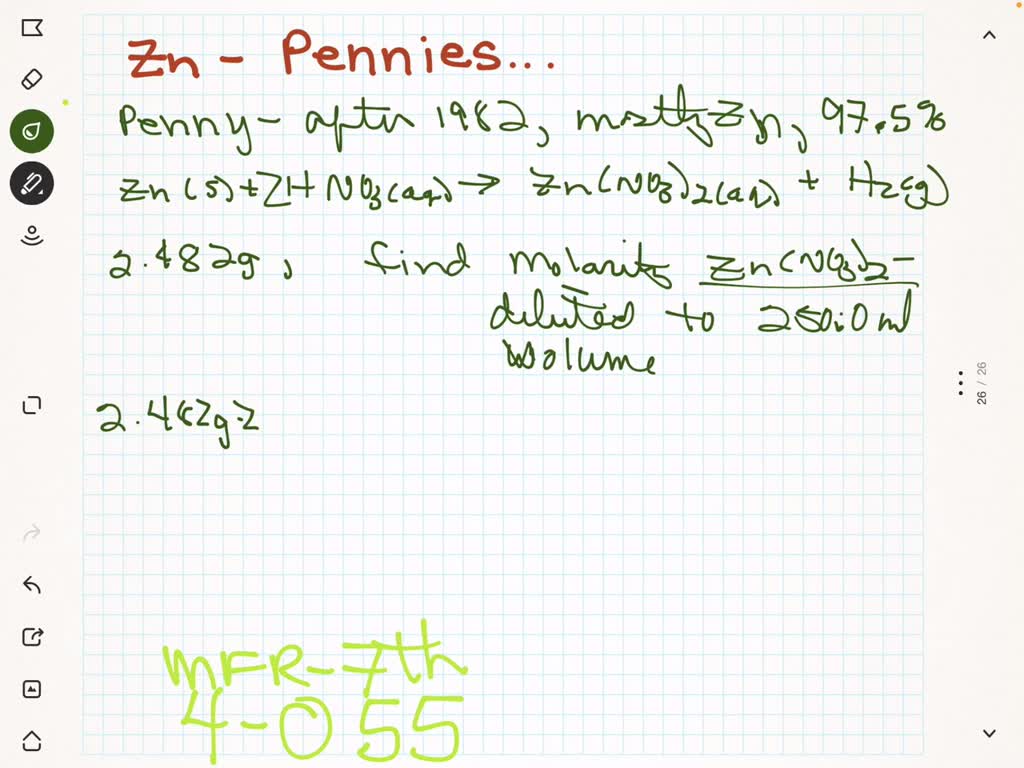 Zn - Pennies...
Penny - after 1982, mostly Zn, 97.5%
Zn(s) + 2HNO3(aq) → Zn(NO3)2(aq) + H2(g)
2.482g, find Molarity Zn(NO3)2 -
diluted to 250.0 ml
Volume
2.482g Z
26 / 26
MFR-7th
4-055